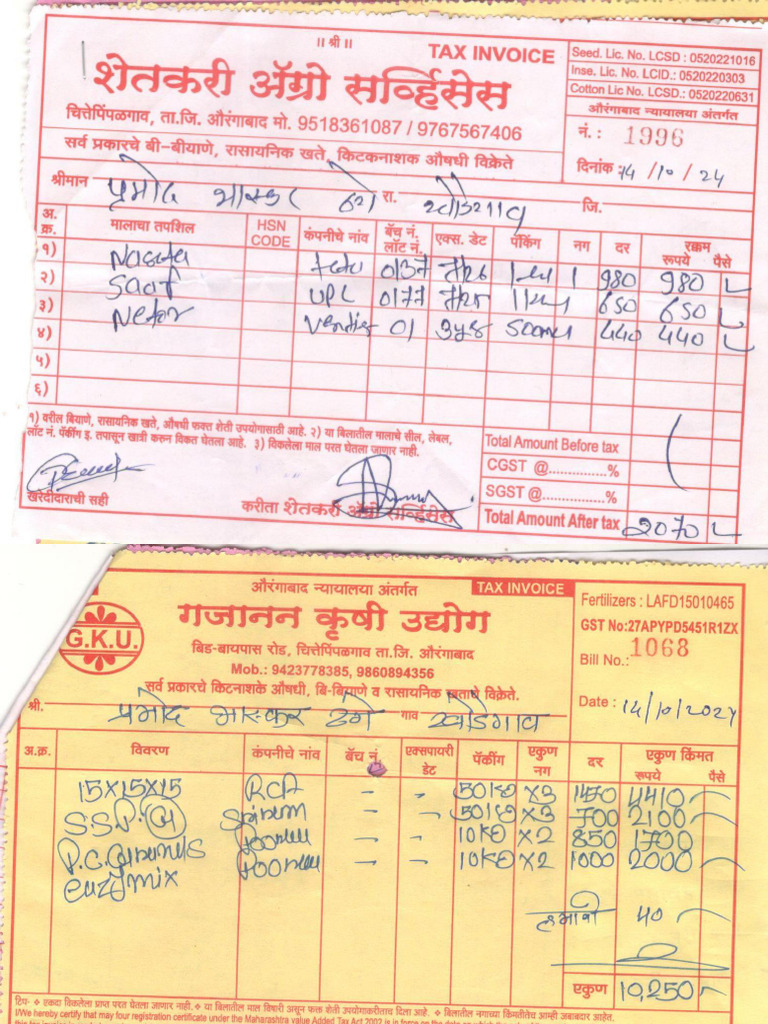 ॥ श्री ॥
TAX INVOICE
शेतकरी ॲग्रो सर्व्हिसेस
चित्तेपिंपळगाव, ता.जि. औरंगाबाद मो. 9518361087 / 9767567406
सर्व प्रकारचे बी-बीयाणे, रासायनिक खते, किटकनाशक औषधी विक्रेते
Seed. Lic. No. LCSD : 0520221016
Inse. Lic. No. LCID.: 0520220303
Cotton Lic No. LCSD.: 0520220631
औरंगाबाद न्यायालया अंतर्गत
नं. : 1996
दिनांक : 14/10/24
श्रीमान प्रमोद भास्कर ढगे रा. खोडेगाव जि.
अ. क्र. मालाचा तपशिल HSN CODE कंपनीचे नांव बॅच नं. लॉट नं. एक्स. डेट पॅकिंग नग दर रक्कम रूपये पैसे
१) 0137 1 980 980
२) Saaf UPL 0177 650 650
३) 01 500ml 440 440
४)
५)
६)
१) वरील बियाणे, रासायनिक खते, औषधी फक्त शेती उपयोगासाठी आहे. २) या बिलातील मालाचे सील, लेबल,
लॉट नं. पॅकींग इ. तपासून खात्री करुन विकत घेतला आहे. ३) विकलेला माल परत घेतला जाणार नाही.
Total Amount Before tax
CGST @...............%
SGST @...............%
Total Amount After tax 2070
खरेदीदाराची सही
करीता शेतकरी ॲग्रो सर्व्हिसेस
औरंगाबाद न्यायालया अंतर्गत
TAX INVOICE
G.K.U.
गजानन कृषी उद्योग
बिड-बायपास रोड, चित्तेपिंपळगाव ता.जि. औरंगाबाद
Mob.: 9423778385, 9860894356
सर्व प्रकारचे किटनाशके औषधी, बि-बियाणे व रासायनिक खताचे विक्रेते.
Fertilizers : LAFD15010465
GST No:27APYPD5451R1ZX
Bill No.: 1068
Date : 14/10/2024
श्री. प्रमोद भास्कर ढगे गाव खोडेगाव
अ.क्र. विवरण कंपनीचे नांव बॅच नं. एक्सपायरी डेट पॅकींग एकुण नग दर एकुण किंमत रूपये पैसे
15X15X15 RCF - - 50KG X3 1450 4410
S.S.P. - - 50KG X3 700 2100
- - 10KG X2 850 1700
10KG X2 1000 2000
हमाली 40
एकुण 10,250
टिप- ❖ एकदा विकलेला प्राप्त परत घेतला जाणार नाही. ❖ या बिलातील माल विषारी असून फक्त शेती उपयोगाकरीताच दिला आहे. ❖ बिलातील नगाच्या किंमतीतेच आम्ही जबाबदार आहेत.
I/We hereby certify that may four registration certificate under the Maharashtra value Added Tax Act 2002 is in force on the